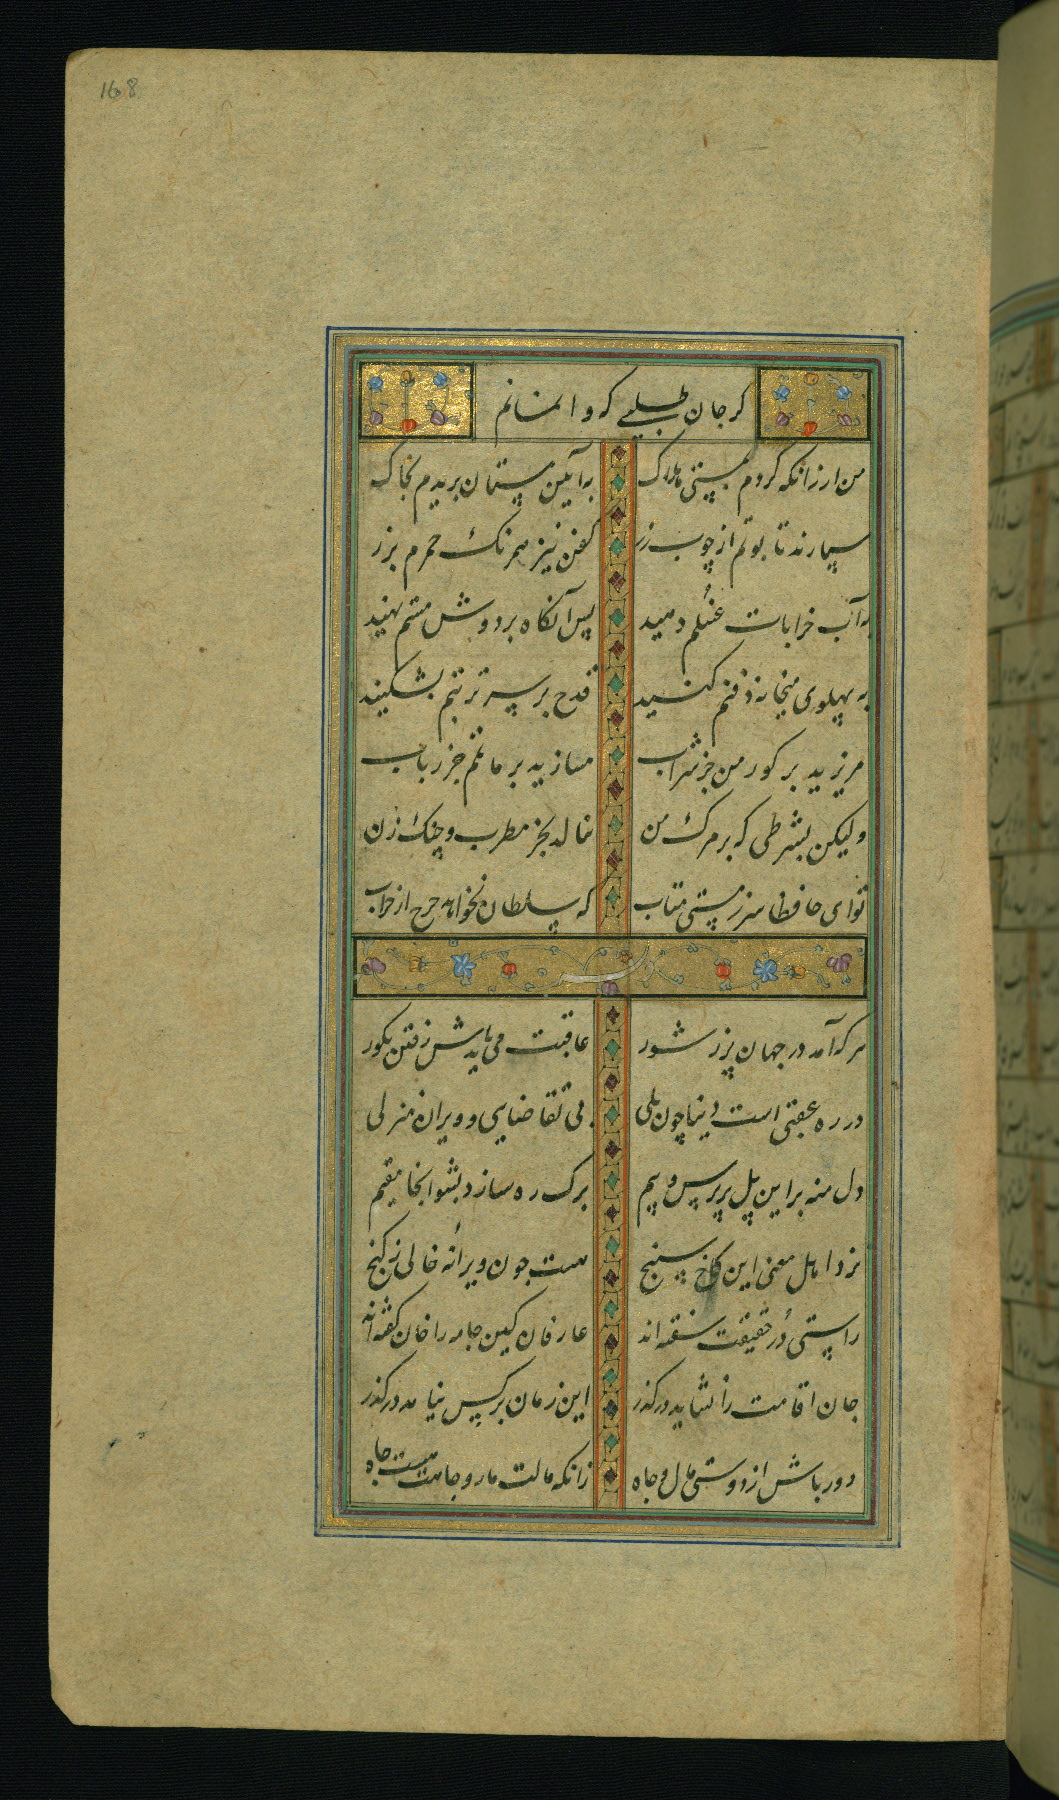 168
گر جان طلبی که وا نمانم
من ار زانکه کردم بمستی هلاک به آیین مستان بریدم بخاک
سپارند تابوتم از چوب رز کفن نیز همرنک خمرم برز
به آب خرابات غسلم دهید پس آنکاه بر دوش مستم نهید
به پهلوی میخانه دفنم کنید قدح بر سر تربتم بشکنید
مریزید بر کور من جز شراب میازید بر ماتم جز رباب
ولیکن بشرطی که بر مرک من ننالد بجز مطرب و چنک زن
تو ای حافظا سر ز مستی متاب که سلطان نخواهد خرج از خراب
هر که آمد در جهان پر ز شور عاقبت می بایدش رفتن بکور
در ره عقبی است دنیا چون پلی بی تقاضایی و ویران منزلی
دل منه بر این پل پر ترس و بیم برک ره ساز و بشو اینجا مقیم
نزد اهل معنی این کاخ سپنج هست چون ویرانه خالی ز کنج
راستی در حقیقت سفته اند عارفان کین جامه را خان گفته اند
جان اقامت را نشاید در کذر این زمان بر کس نیامد در کذر
دور باش از دوستی مال و جاه زانکه مالت مار و جاهت هست چاه